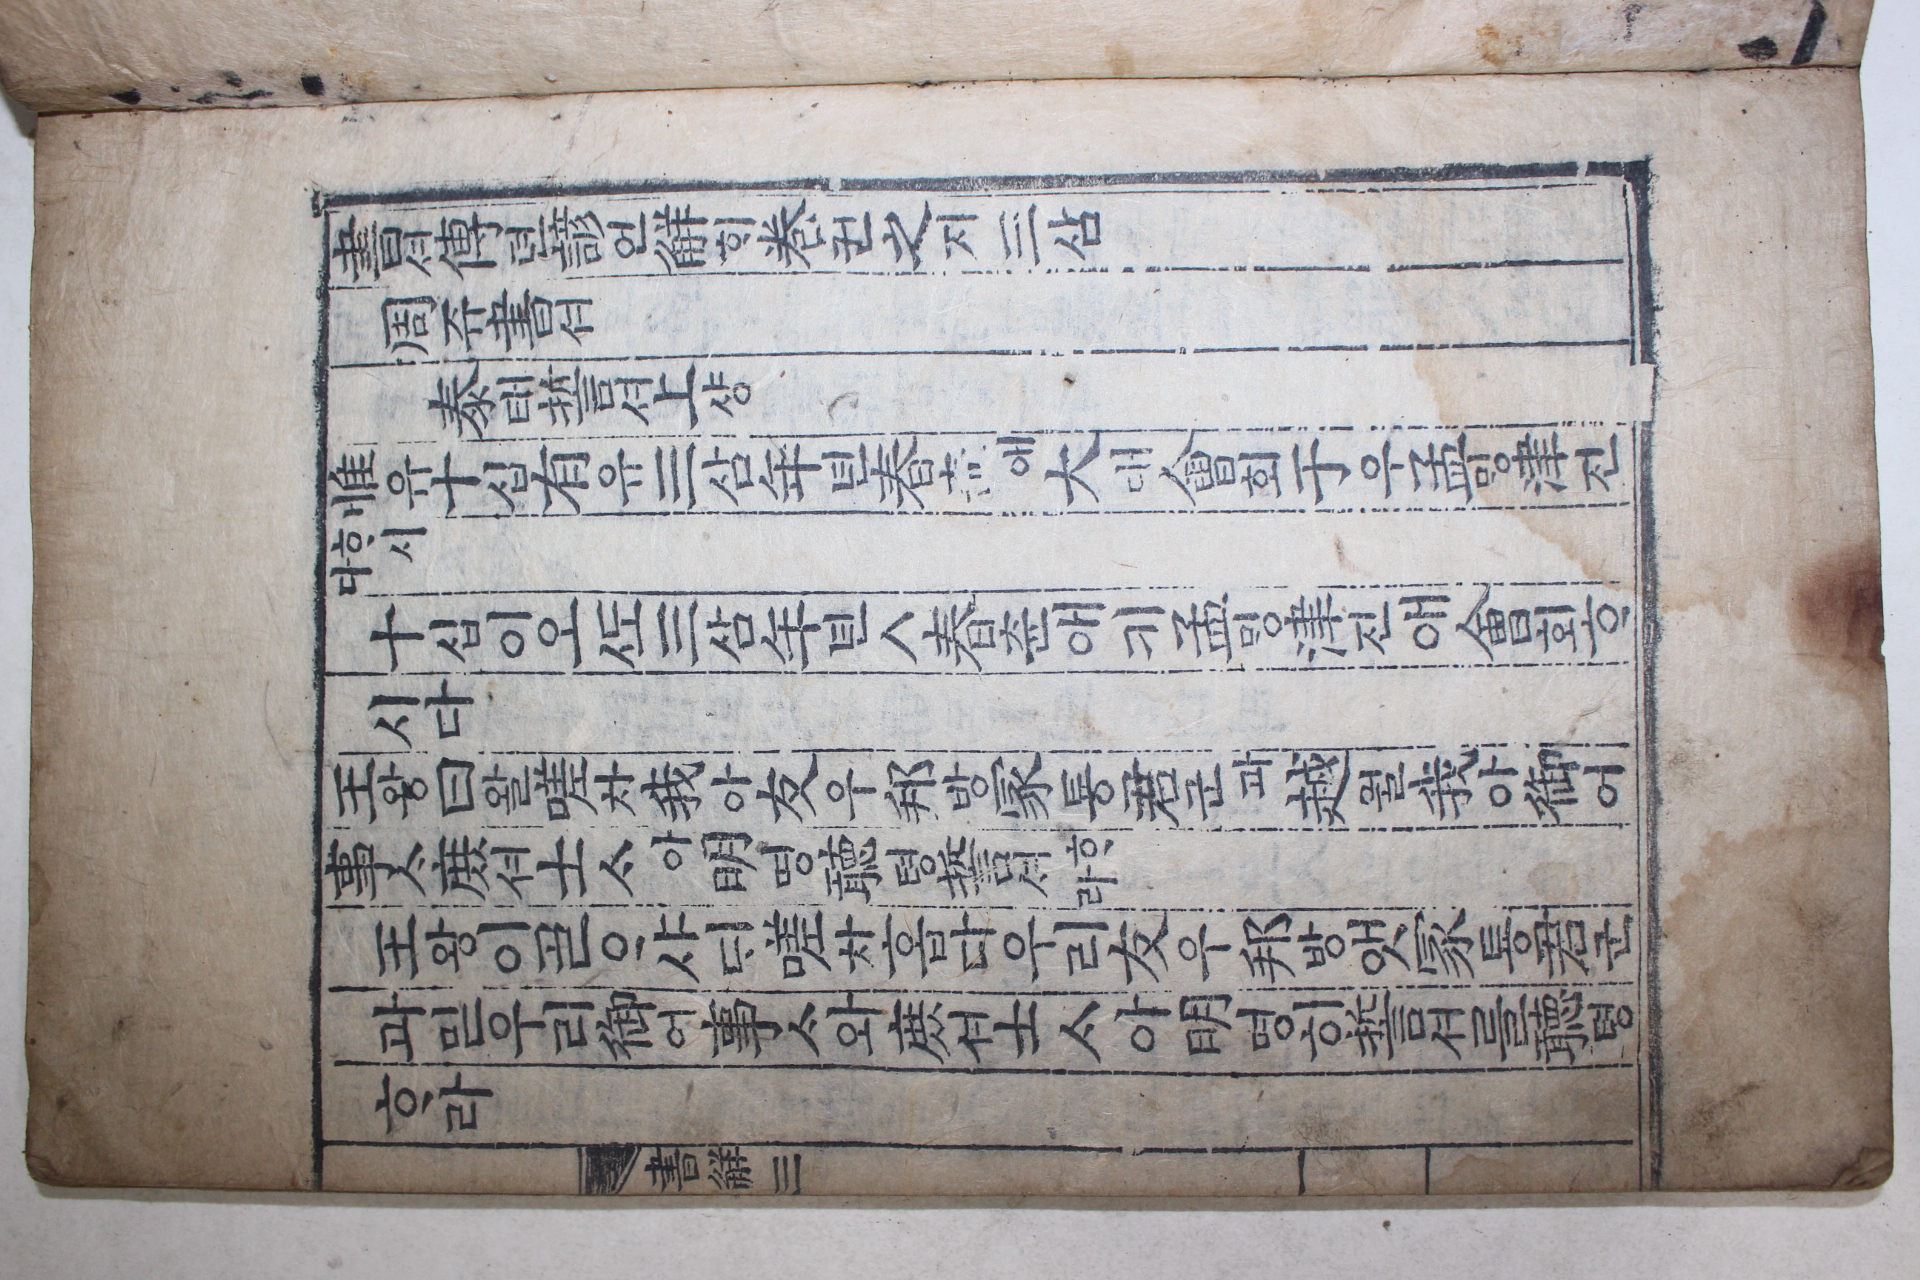 書셔傳뎐諺언解ᄒᆡ卷권之지三삼
周쥬書셔
泰태誓셔上샹
惟유十십有유三삼年년春츈에大대會회于우孟ᄆᆡᆼ津진
ᄒᆞ시다
十십이오ᄯᅩ三삼年년ㅅ春츈애키孟ᄆᆡᆼ津진애會회ᄒᆞ
시다
王왕曰왈嗟차我아友우邦방冢통君군과越월我아御어
事ᄉᆞ庶셔士ᄉᆞ아明명聽텽誓셔ᄒᆞ라
王왕이ᄀᆞᆯᄋᆞ샤ᄃᆡ嗟차홉다우리友우邦방앳冢통君군
과믿우리御어事ᄉᆞ와庶셔士ᄉᆞ아明명히誓셔를聽텽
ᄒᆞ라
書解三